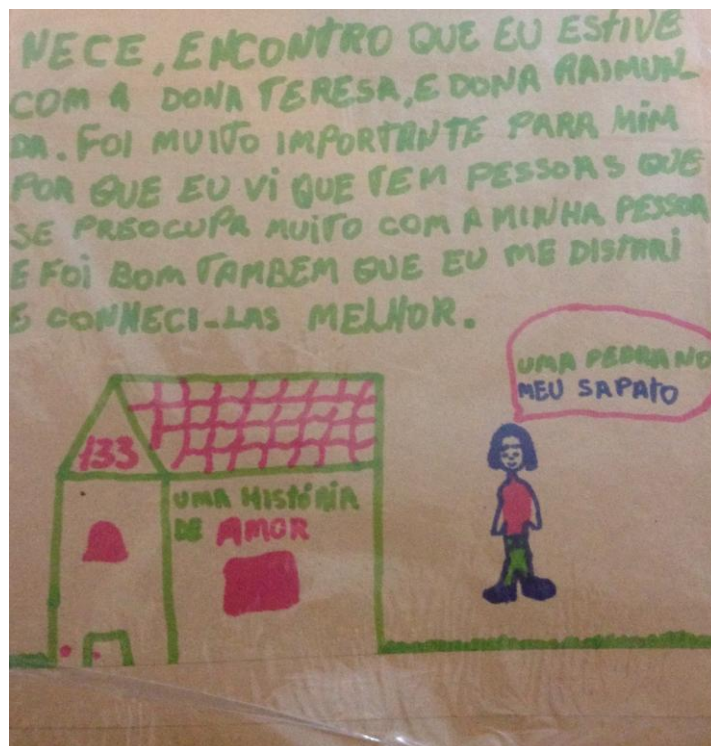 NECE, ENCONTRO QUE EU ESTIVE
COM A DONA TERESA, E DONA RAIMUN-
DA. FOI MUITO IMPORTANTE PARA MIM
POR QUE EU VI QUE TEM PESSOAS QUE
SE PREOCUPA MUITO COM A MINHA PESSOA
E FOI BOM TAMBEM QUE EU ME DISTRAI
E CONHECI-LAS MELHOR.
UMA PEDRA NO
MEU SAPATO
133
UMA HISTÓRIA
DE AMOR